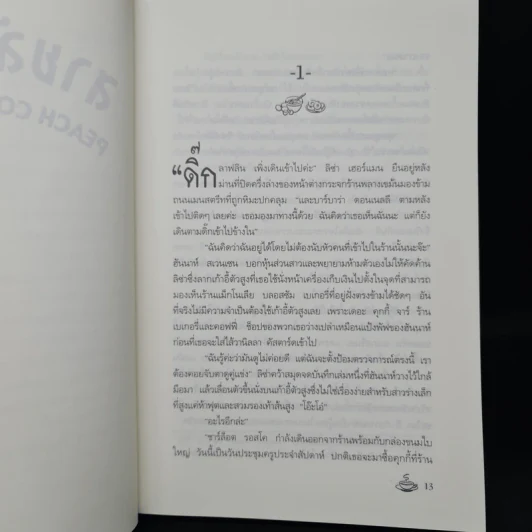 สายลั
PEACH CO
-1-
"ดิ๊ก ลาฟลิน เพิ่งเดินเข้าไปค่ะ" ลิซ่า เฮอร์แมน ยืนอยู่หลัง
ม่านที่ปิดครึ่งล่างของหน้าต่างกระจกร้านพลางเขม้นมองข้าม
ถนนเมนสตรีทที่ถูกหิมะปกคลุม "และบาร์บาร่า ดอนเนลลี ตามหลัง
เข้าไปติดๆ เลยค่ะ เธอมองมาทางนี้ด้วย ฉันคิดว่าเธอเห็นฉันนะ แต่ก็ยัง
เดินตามดิ๊กเข้าไปข้างใน"
"ฉันคิดว่าฉันอยู่ได้โดยไม่ต้องนับหัวคนที่เข้าไปในร้านนั้นนะจ๊ะ"
ฮันนาห์ สเวนเซน บอกหุ้นส่วนสาวและพยายามห้ามตัวเองไม่ให้คัดค้าน
ลิซ่าซึ่งลากเก้าอี้ตัวสูงที่เธอใช้นั่งหน้าเครื่องเก็บเงินไปตั้งในจุดที่สามารถ
มองเห็นร้านแม็กโนเลีย บลอสซัม เบเกอรี่ที่อยู่ฝั่งตรงข้ามได้ชัดๆ อัน
ที่จริงไม่มีความจำเป็นต้องใช้เก้าอี้ตัวสูงเลย เพราะเดอะ คุกกี้ จาร์ ร้าน
เบเกอรี่และคอฟฟี่ ช็อปของพวกเธอว่างเปล่าเหมือนแป้งพัฟของฮันนาห์
ก่อนที่เธอจะใส่ไส้วานิลลา คัสตาร์ดเข้าไป
"ฉันรู้ค่ะว่ามันดูไม่ค่อยดี แต่ฉันจะตั้งป้อมตรวจการณ์ตรงนี้ เรา
ต้องคอยจับตาดูคู่แข่ง" ลิซ่าคว้าสมุดจดบันทึกเล่มหนึ่งที่ฮันนาห์วางไว้ใกล้
มือมา แล้วเลื่อนตัวขึ้นนั่งบนเก้าอี้ตัวสูงซึ่งไม่ใช่เรื่องง่ายสำหรับสาวร่างเล็ก
ที่สูงแค่ห้าฟุตและสวมรองเท้าส้นสูง "โอ๊ะโอ๋"
"อะไรอีกล่ะ"
"ชาร์ล็อต รอสโค กำลังเดินออกจากร้านพร้อมกับกล่องขนมใบ
ใหญ่ วันนี้เป็นวันประชุมครูประจำสัปดาห์ ปกติเธอจะมาซื้อคุกกี้ที่ร้าน
13